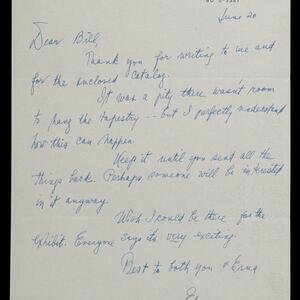 June 20
Dear Bill,
Thank you for writing to me and
for the enclosed catalog.
It was a pity there wasn't room
to hang the tapestry -- but I perfectly understand
how this can happen.
Keep it until you send all the
things back. Perhaps someone will be interested
in it anyway.
Wish I could be there for the
exhibit. Everyone says its very exciting.
Best to both you & Erna